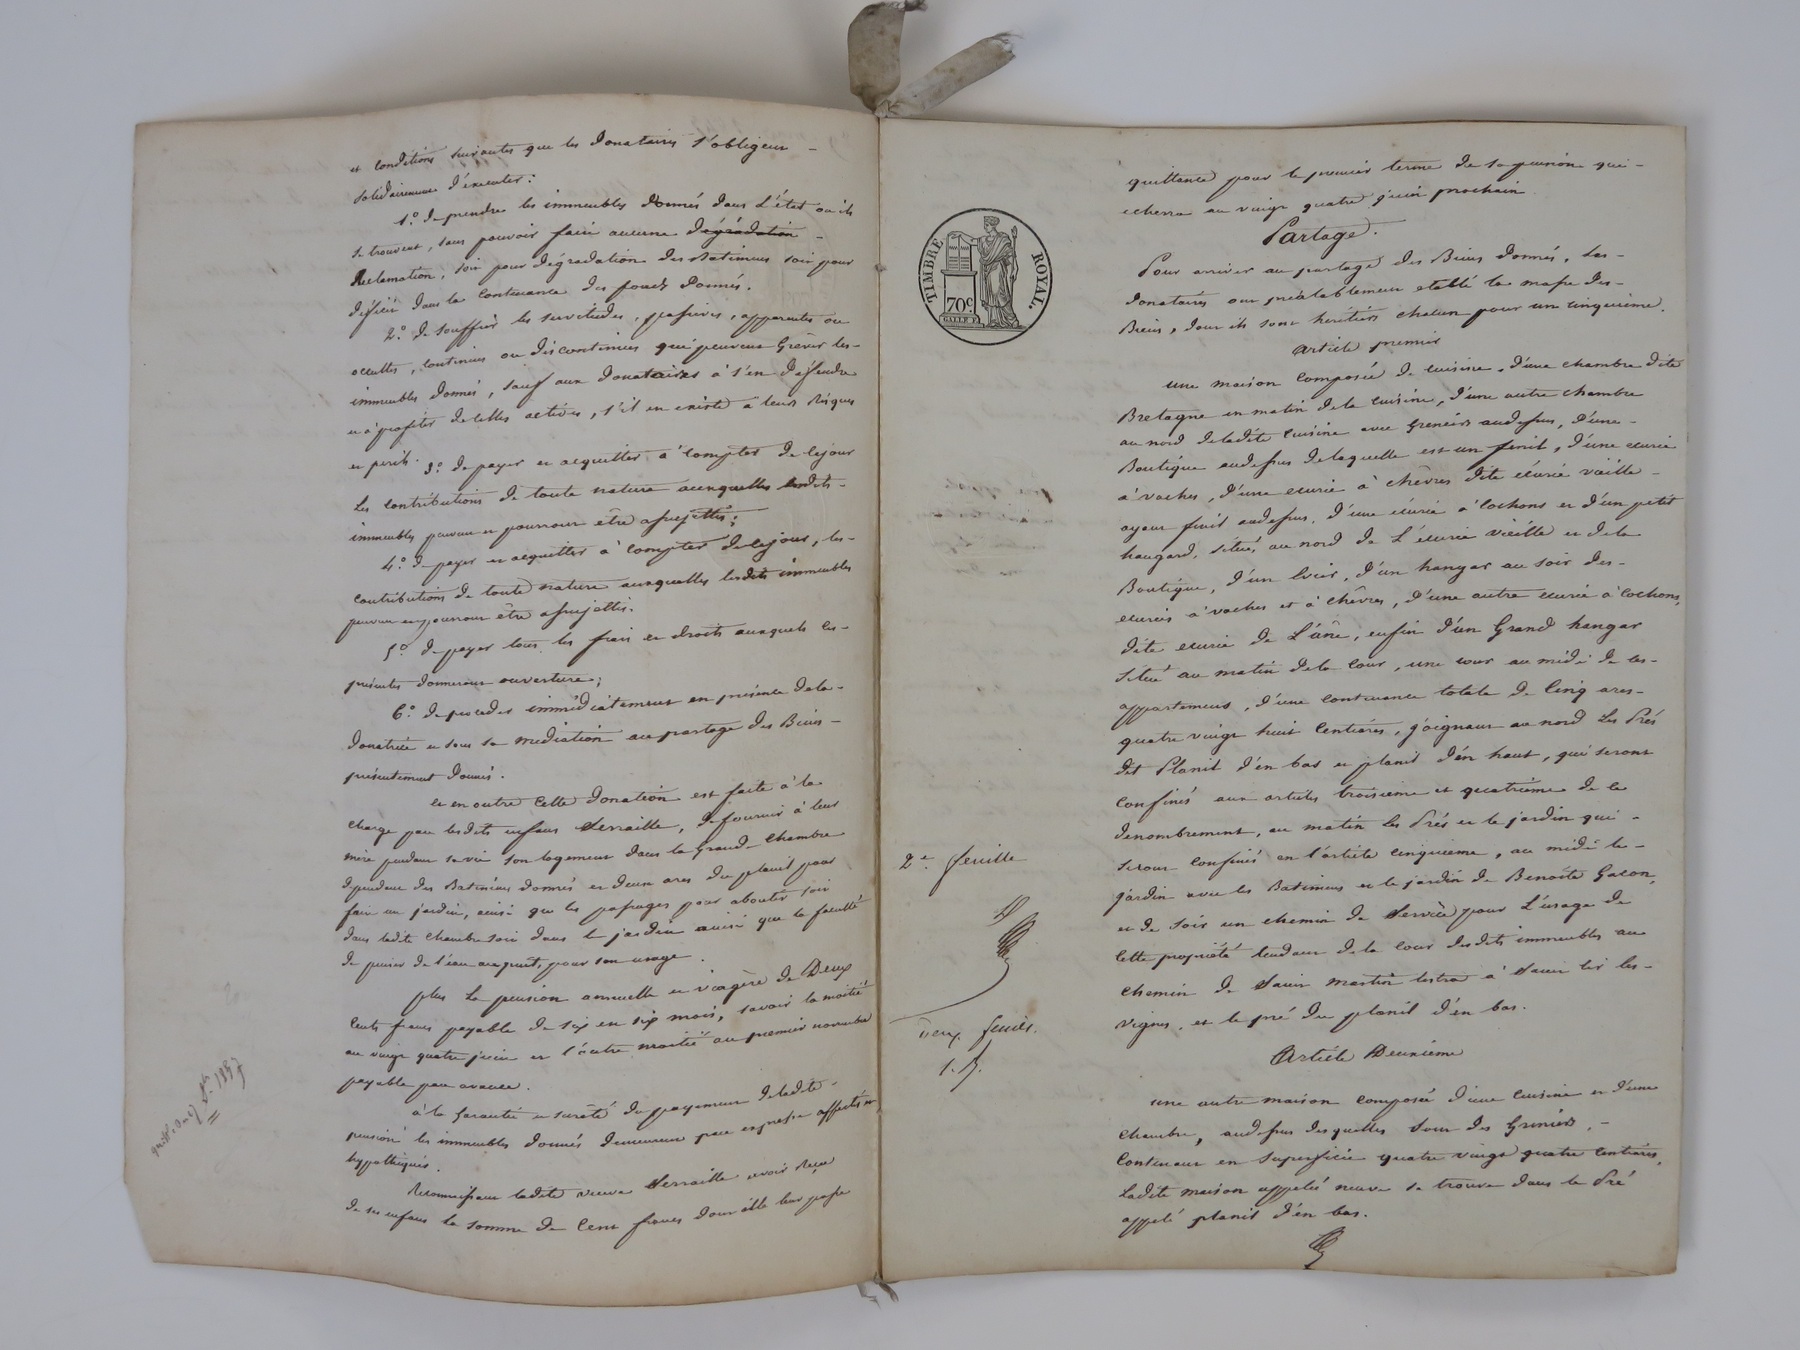 et conditions suivantes que les donataires s'obligent -
solidairement d'éxecuter:
1.° de prendre les immeubles donnés dans l'état où ils
se trouvent, sans pouvoir faire aucune dégradation -
Réclamation, soit pour dégradation des Batimens soit pour
déficit dans la contenance des fonds donnés.
2.° de souffrir les servitudes, passives, apparentes ou
occultes, continues ou discontinues qui peuvent grever les-
immeubles donnés, sauf aux donataires à s'en défendre
et à profiter de celles actives, s'il en existe à leurs Risques
et périls.
3.° de payer et acquitter à compter de ce jour
les contributions de toute nature auxquelles lesdits-
immeubles peuvent et pourront être assujettis;
4.° de payer et acquitter à compter de ce jour, les-
contributions de toute nature auxquelles lesdits immeubles
peuvent et pourront être assujettis.
5.° de payer tous les frais et droits auxquels ces-
présentes donneront ouverture;
6.° de proceder immédiatement en présence de la-
donatrice et sous sa médiation au partage des Biens-
présentement donnés.
et en outre cette donation est faite à la
charge par lesdits enfans Serraille, de fournir à leur
mère pendant sa vie son logement dans la Grande chambre
dependant des Batimens donnés et deux ares du planit pour
faire un jardin, ainsi que les passages pour aboutir soit
dans ladite chambre soit dans le jardin ainsi que la faculté
de puiser de l'eau au puit, pour son usage.
plus la pension annuelle et viagère de Deux
cents francs payable de six en six mois, savoir la moitié
au vingt quatre juin et l'autre moitié au premier novembre
payable par avance.
à la Garantie et sûreté du payement de ladite-
pension les immeubles donnés demeurent par expresse affectés et
hypothéqués.
Reconnaissant ladite veuve Serraille avoir Reçu
de ses enfans la somme de Cent francs dont elle leur passe
quittance pour le premier terme de sa pension qui-
echerra au vingt quatre juin prochain
Partage.
Pour arriver au partage des Biens donnés, les-
donataires ont préalablement etabli la masse des-
Biens, dont ils sont heritiers chacun pour un cinquieme.
article premier
une maison composée de cuisine, d'une chambre dite
Bretagne en matin de la cuisine, d'une autre chambre
au nord de ladite cuisine avec Greniers audessus, d'une-
Boutique audessus de laquelle est un fenil, d'une ecurie
à vaches, d'une ecurie à chèvres dite écurie vieille-
ayant fenil audessus, d'une écurie à cochons et d'un petit
hangard, situés au nord de l'écurie vieille et de la
Boutique, d'un hangar au soir des-
ecuries à vaches et à chèvres, d'une autre ecurie à cochons,
dite ecurie de L'âne, enfin d'un Grand hangar
situé au matin de la cour, une cour au midi de ces-
appartemens, d'une contenance totale de Cinq ares-
quatre vingt huit centiares, joignant au nord Les Prés
dit Planit d'en bas et planit d'en haut, qui seront
confinés aux articles troisieme et quatrieme de ce
denombrement, au matin les Prés et le jardin qui-
seront confinés en l'article cinquieme, au midi le-
jardin avec les Batimens et le jardin de Benoite Gacon,
et de soir un chemin de Service pour L'usage de
cette propriété tendant de la cour desdits immeubles au
chemin de Saint martin lestra à Saint Cir les-
vignes, et le pré du planit d'en bas.
Article Deuxieme
une autre maison composée d'une cuisine et d'une
chambre, audessus desquelles sont des Greniers,-
Contenant en Superficie quatre vingt quatre centiares,
Ladite maison appelée neuve se trouve dans le Pré
appelé planit d'en bas.
TIMBRE ROYAL.
70c.
2e. feuille
Deux feuilles.